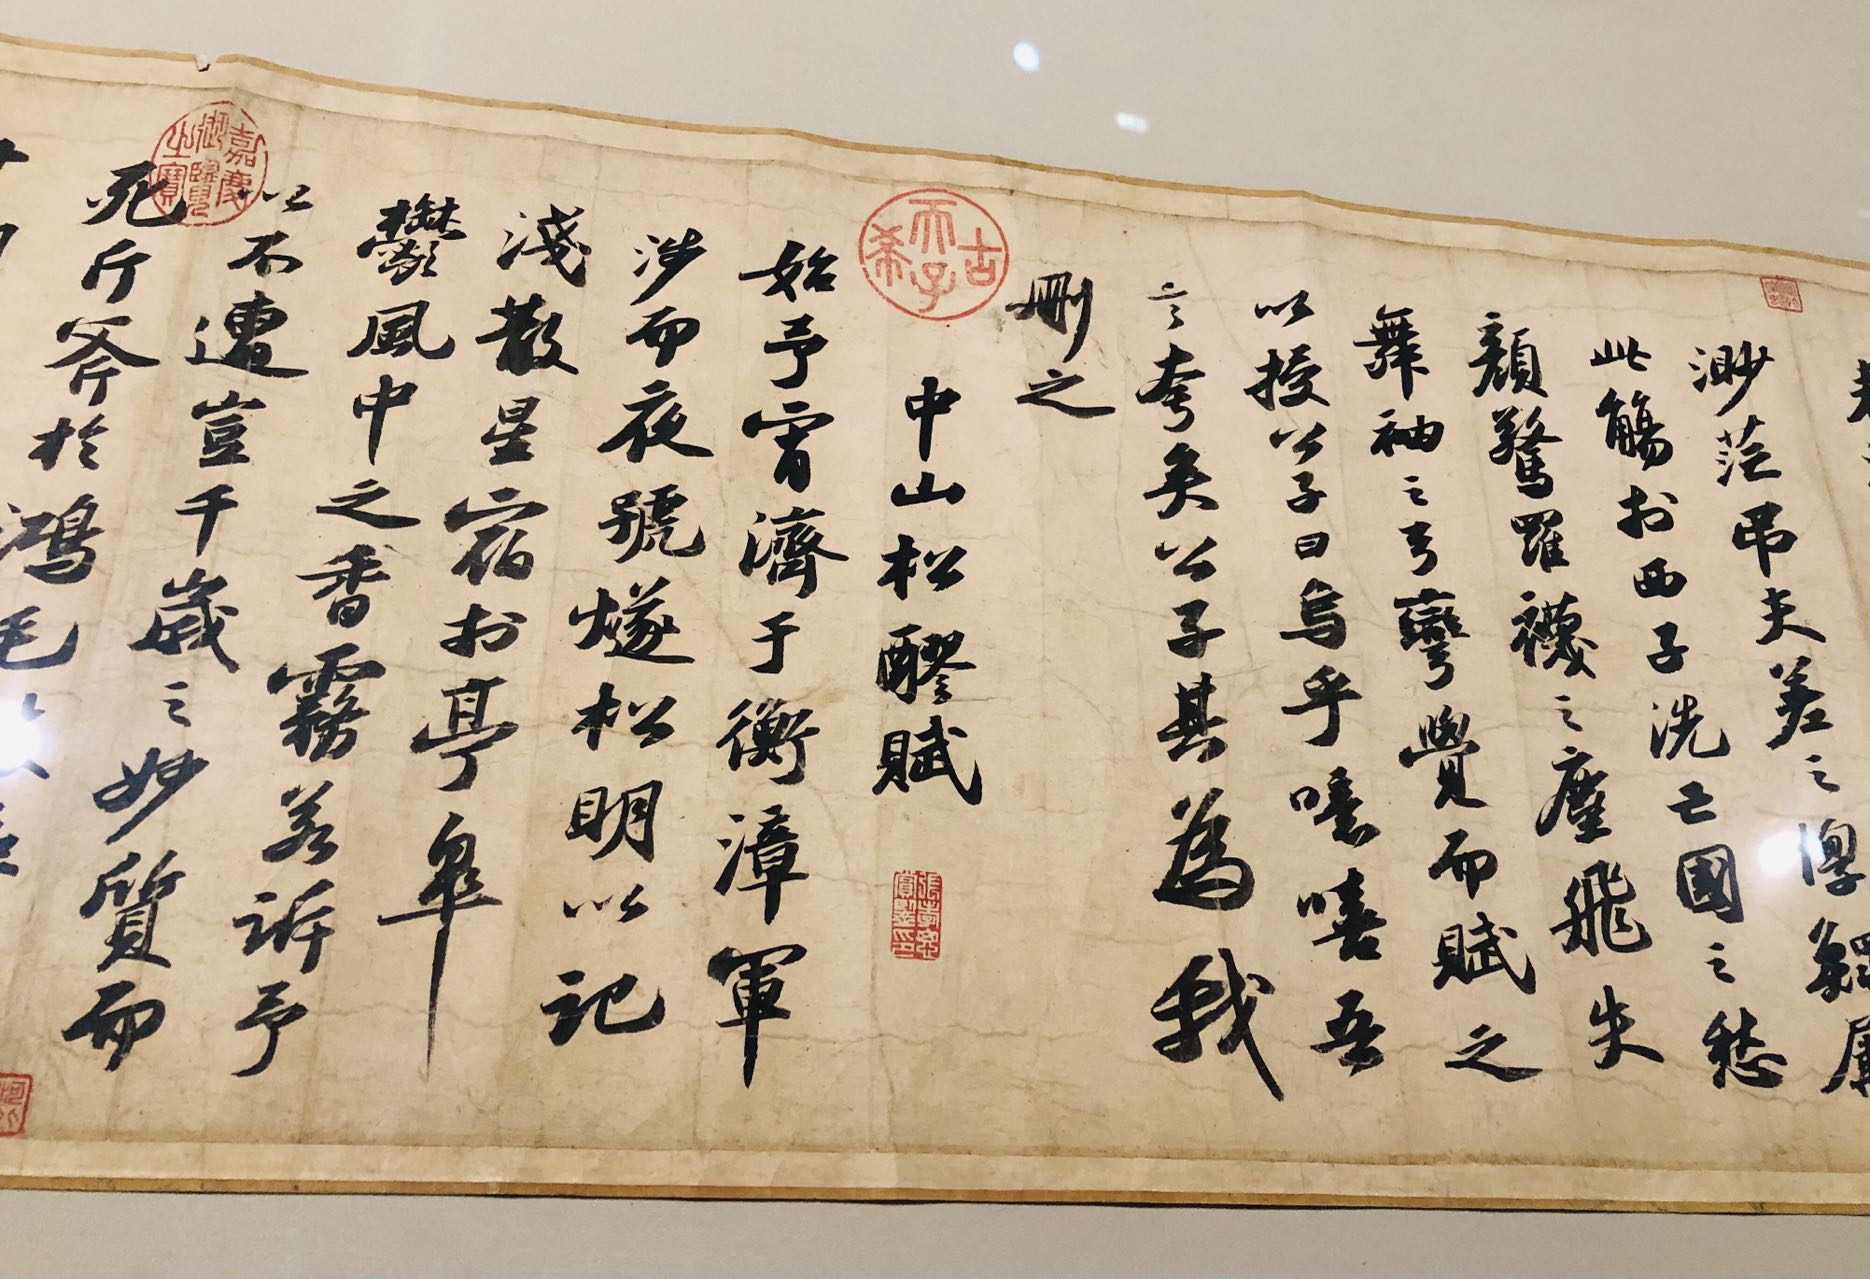 渺茫吊夫差之惸鰥屬
此觴扵西子洗亡國之愁
顏驚羅襪之塵飛失
舞袖之弓彎覺而賦之
以授公子曰烏乎噫嘻吾
言夸矣公子其為我
刪之
古希天子
中山松醪賦
張孝思賞鑒印
始予宵濟于衡漳軍
涉而夜號燧松明以記
淺散星宿扵亭皐
鬱風中之香霧若訴予
以不遭豈千歲之妙質而
嘉慶御覽之寶
死斤斧扵鴻毛